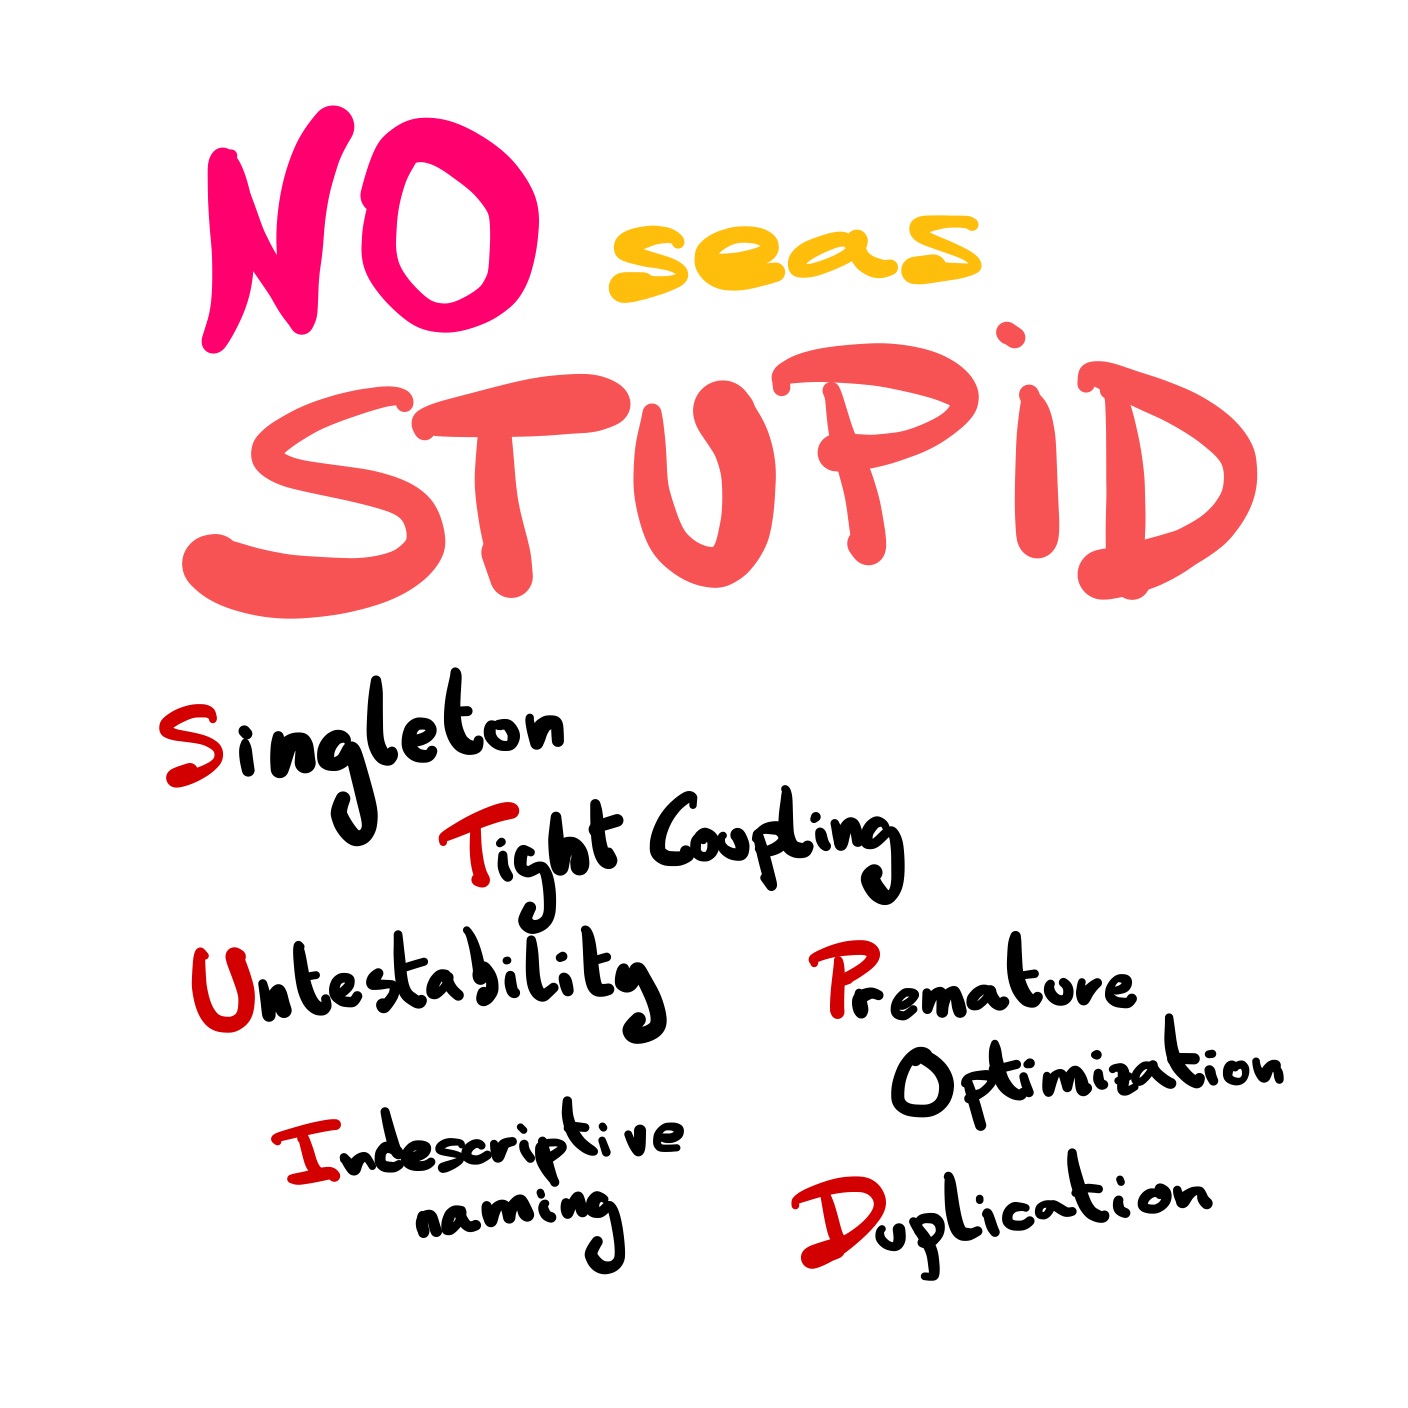 NO seas
STUPiD
Singleton
Tight Coupling
Untestability
Premature
Optimization
Indescriptive
naming
Duplication